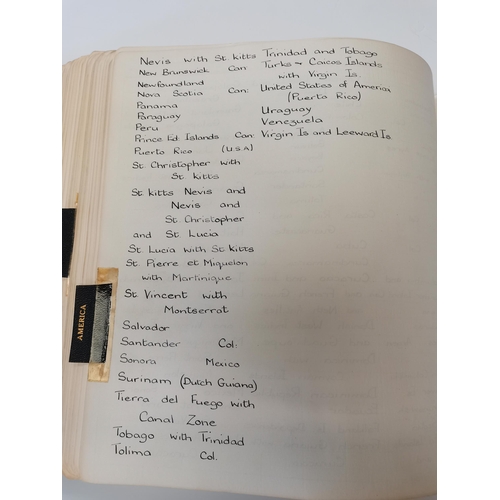 Nevis with St. Kitts
New Brunswick Can:
Newfoundland
Nova Scotia Can:
Panama
Paraguay
Peru
Prince Ed. Islands Can:
Puerto Rico (U.S.A)
St. Christopher with
St. Kitts
St. Kitts Nevis and
Nevis and
St. Christopher
and St. Lucia
St. Lucia with St. Kitts
St. Pierre et Miquelon
with Martinique
St. Vincent with
Montserrat
Salvador
Santander Col:
Sonora Mexico
Surinam (Dutch Guiana)
Tierra del Fuego with
Canal Zone
Tobago with Trinidad
Tolima Col.
Trinidad and Tobago
Turks & Caicos Islands
with Virgin Is.
United States of America
(Puerto Rico)
Uraguay
Venezuela
Virgin Is and Leeward Is.
AMERICA